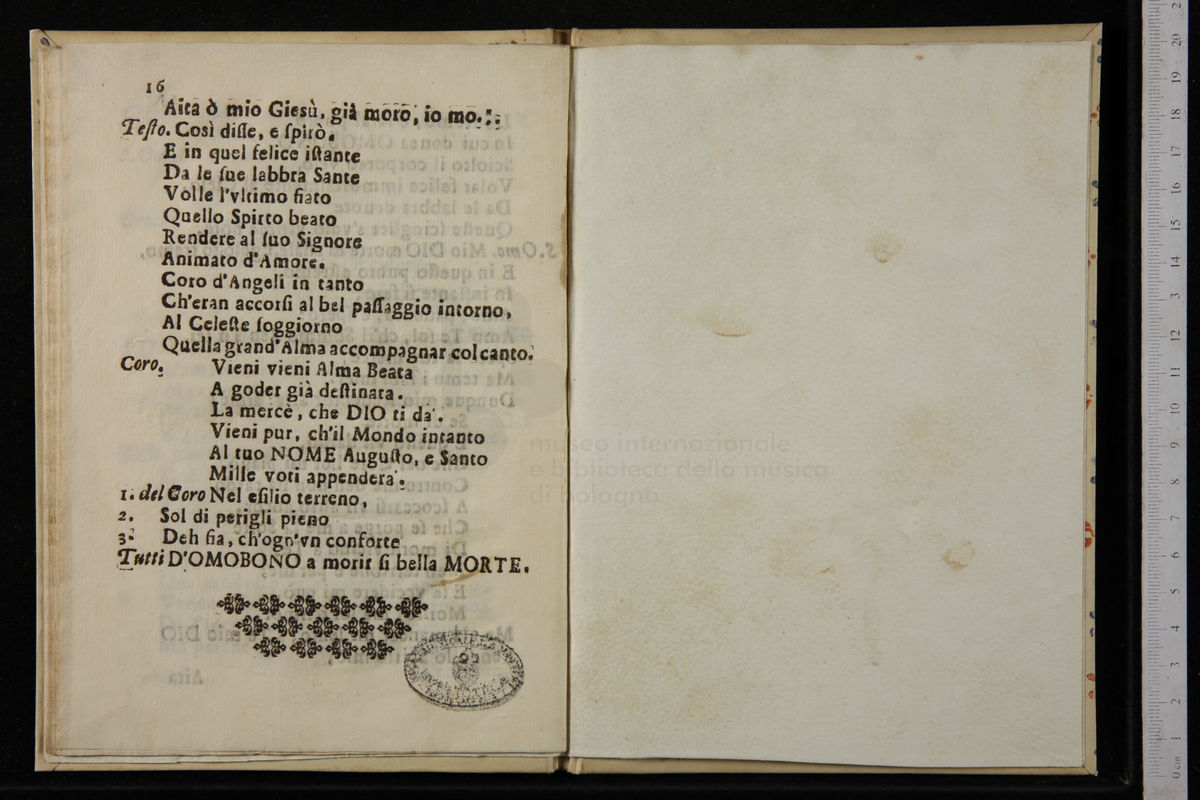 16
Aita ò mio Giesù, già moro, io mo.::
Testo. Così disse, e spirò.
E in quel felice istante
Da le sue labbra Sante
Volle l'vltimo fiato
Quello Spirto beato
Rendere al suo Signore
Animato d'Amore.
Coro d'Angeli in tanto
Ch'eran accorsi al bel passaggio intorno,
Al Celeste soggiorno
Quella grand'Alma accompagnar col canto.
Coro. Vieni vieni Alma Beata
A goder già destinata.
La mercè, che DIO ti dà.
Vieni pur, ch'il Mondo intanto
Al tuo NOME Augusto, e Santo
Mille voti appenderà.
1. del Coro Nel esilio terreno,
2. Sol di perigli pieno
3. Deh sia, ch'ogn'vn conforte
Tutti D'OMOBONO a morir sì bella MORTE.
museo internazionale
e biblioteca della musica
di bologna